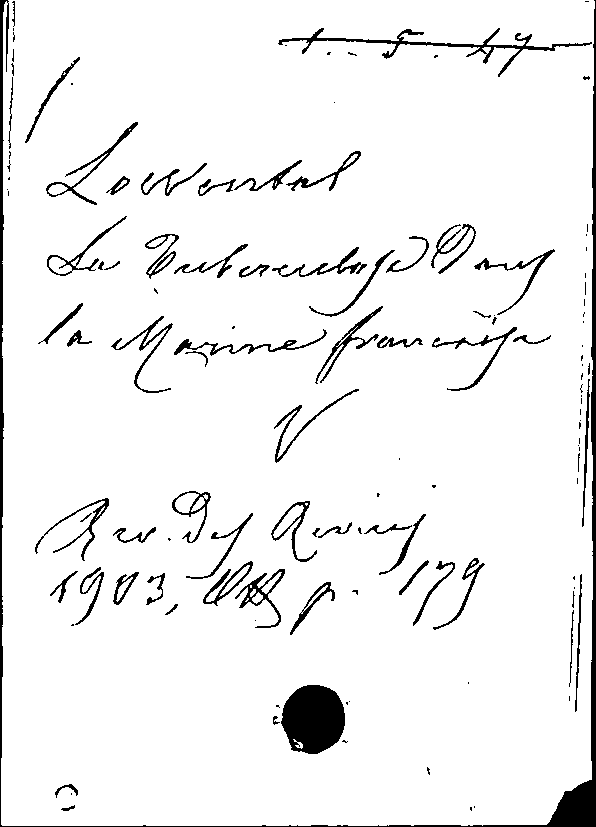 1. - 5. 47
Lowenthal
La Tuberculose dans
la Marine française
V
Rev. des Revues
1903, p. 179